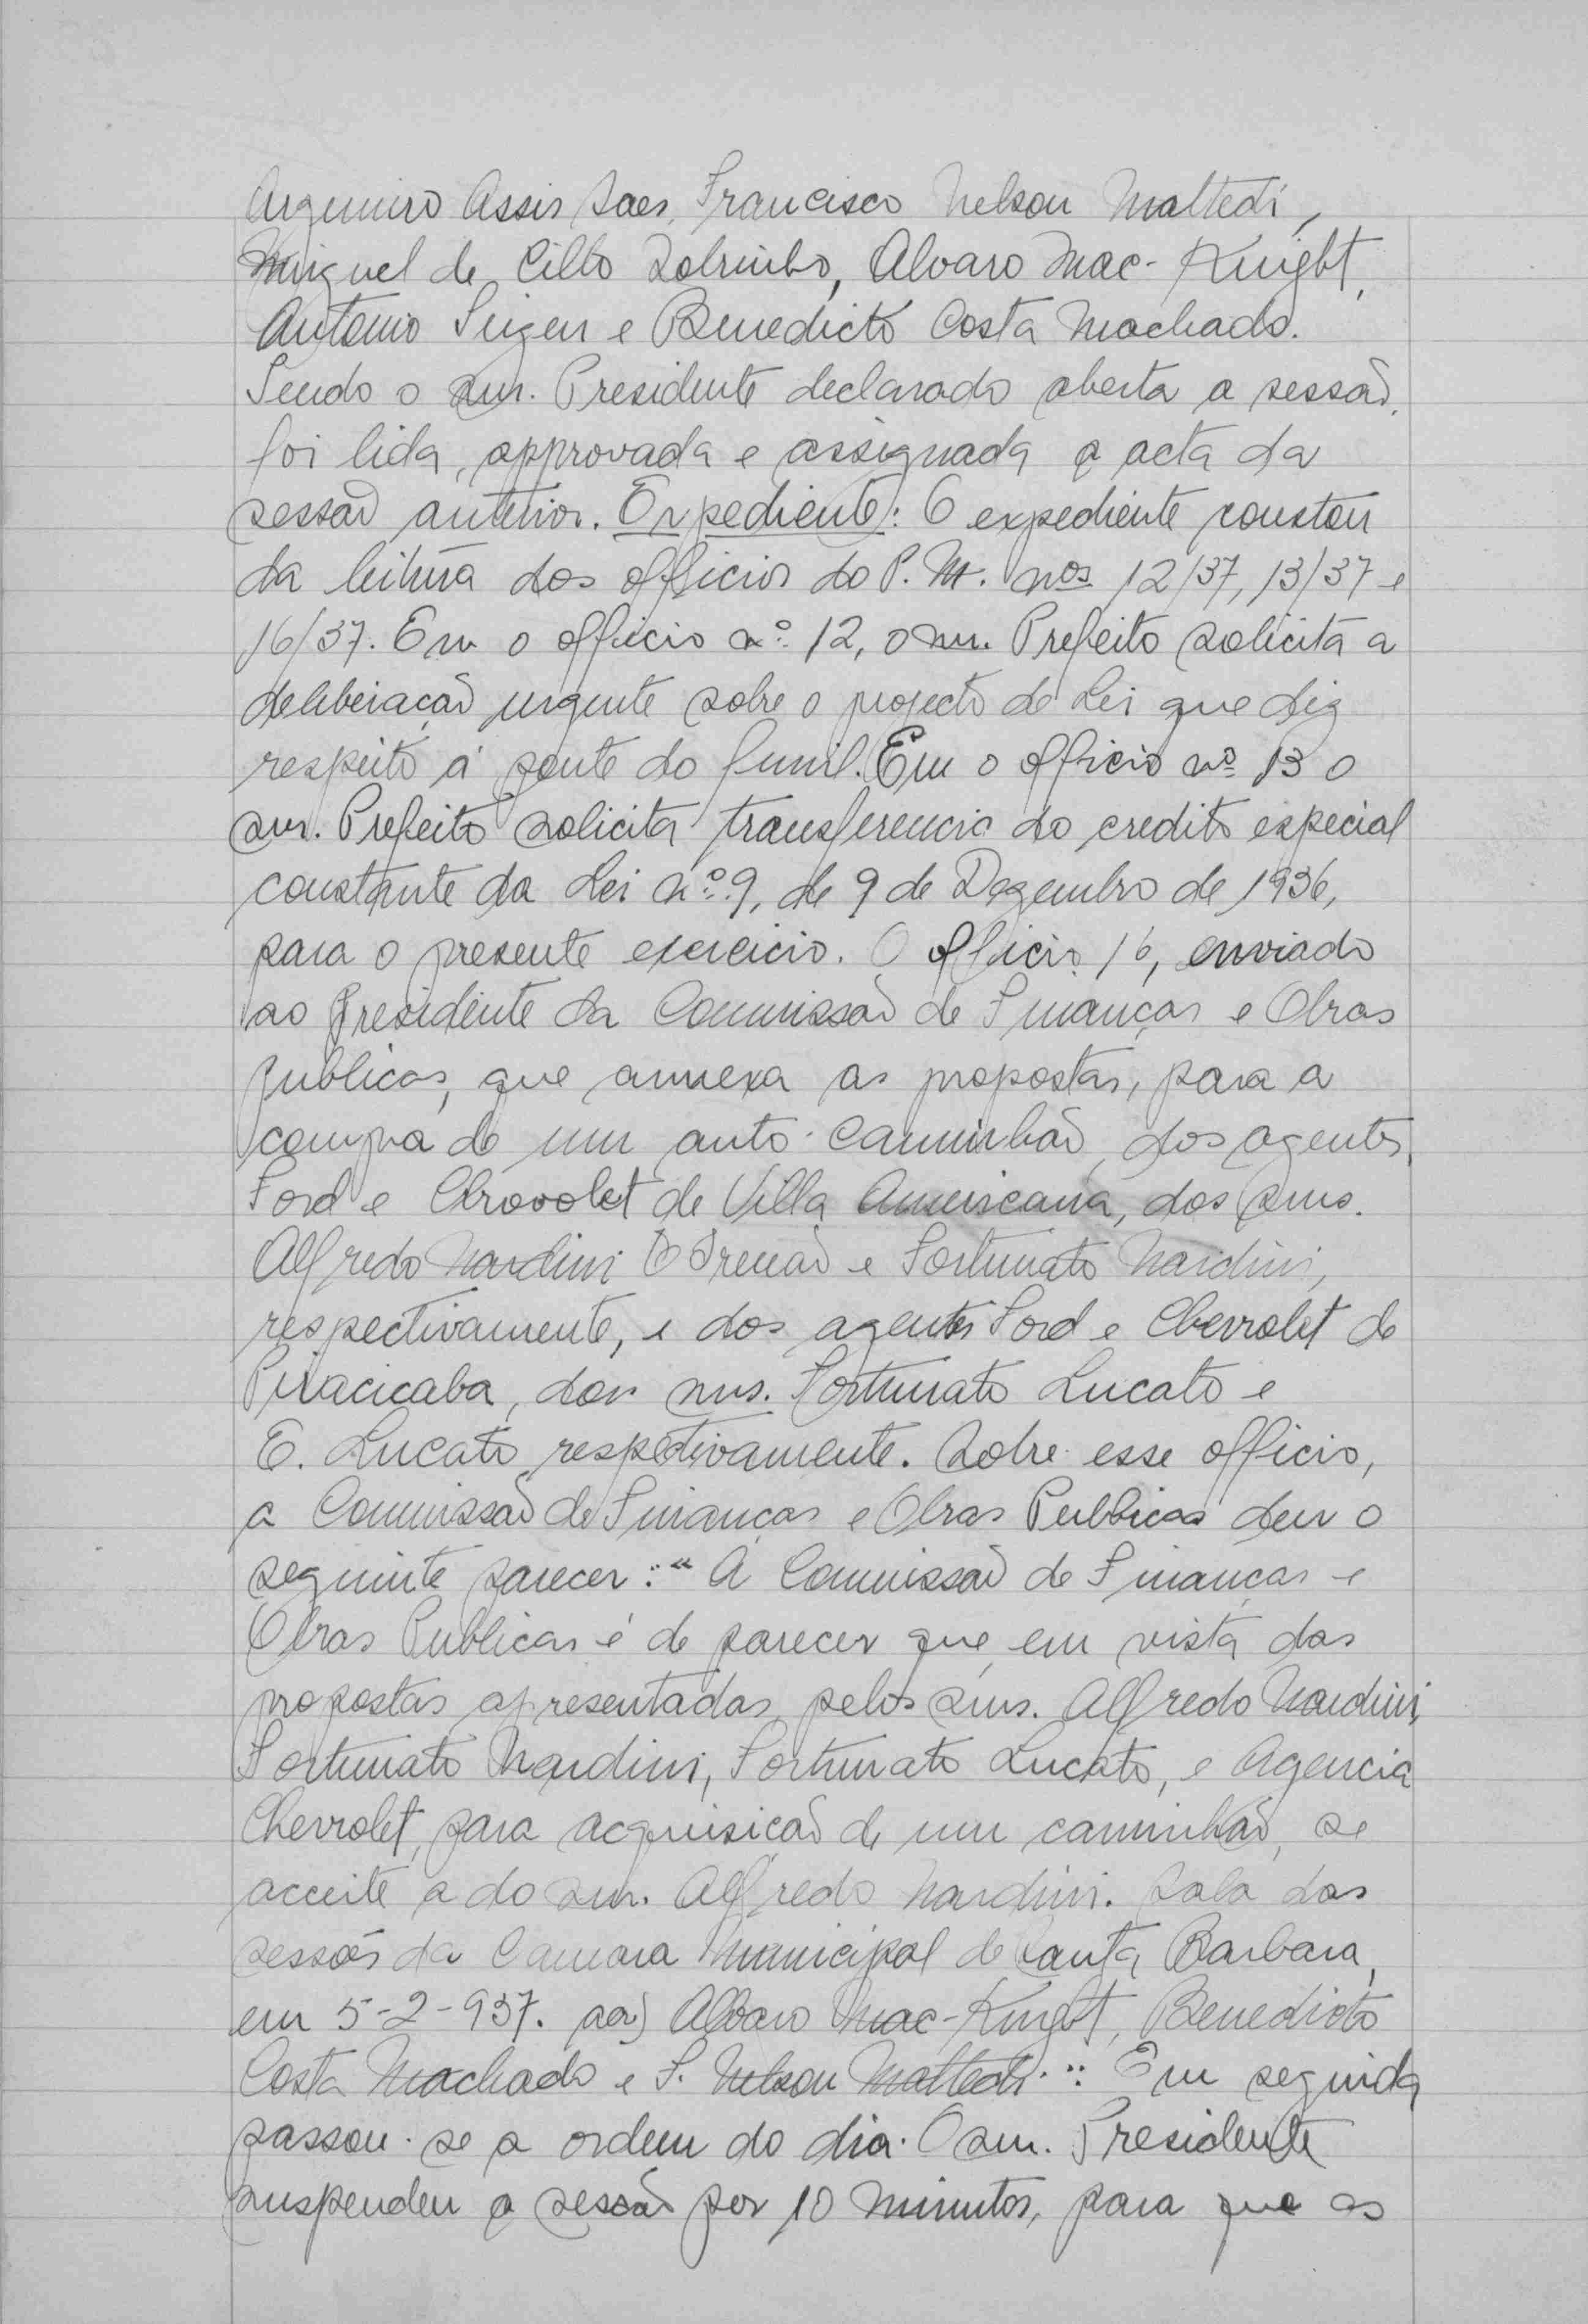 Argemiro Assis Saes, Francisco Nelson Mattedi,
Miguel de Cillo Sobrinho, Alvaro Mac-Knight,
Antonio Seigen e Benedicto Costa Machado.
Tendo o snr. Presidente declarado aberta a sessão,
foi lida, approvada e assignada a acta da
sessão anterior. Expediente: O expediente constou
da leitura dos officios do P. M. nos 12/37, 13/37 e
16/37. Em o officio nº 12, o snr. Prefeito solicita a
deliberação urgente sobre o projecto de Lei que diz
respeito á ponte do funil. Em o officio nº 13 o
snr. Prefeito solicita transferencia do credito especial
constante da Lei nº 9, de 9 de Dezembro de 1936,
para o presente exercicio. O officio 16, enviado
ao presidente da Commissão de Finanças e Obras
publicas, que annexa as propostas, para a
compra de um auto-caminhão, dos agentes,
Ford e Chrovolet de Villa Americana, dos snrs.
Alfredo Nardini & Irmão e Fortunato Nardini,
respectivamente, e dos agentes Ford e Chevrolet de
Piracicaba, dos snrs. Fortunato Lucato e
E. Lucato, respetivamente. Sobre esse officio,
a Commissão de Finanças e Obras Publicas deu o
seguinte parecer: "A Commissão de Finanças e
Obras Publicas é de parecer que, em vista das
propostas apresentadas pelos snrs. Alfredo Nardini,
Fortunato Nardini, Fortunato Lucato, e Agencia
Chevrolet, para acquisição de um caminhão, se
acceite a do snr. Alfredo Nardini. Sala das
sessões da Camara Municipal de Santa Barbara,
em 5-2-937. aa) Alvaro Mac-Knight, Benedicto
Costa Machado e F. Nelson Mattedi." Em seguida
passou-se a ordem do dia. O snr. Presidente
suspendeu a sessão por 10 minutos, para que as